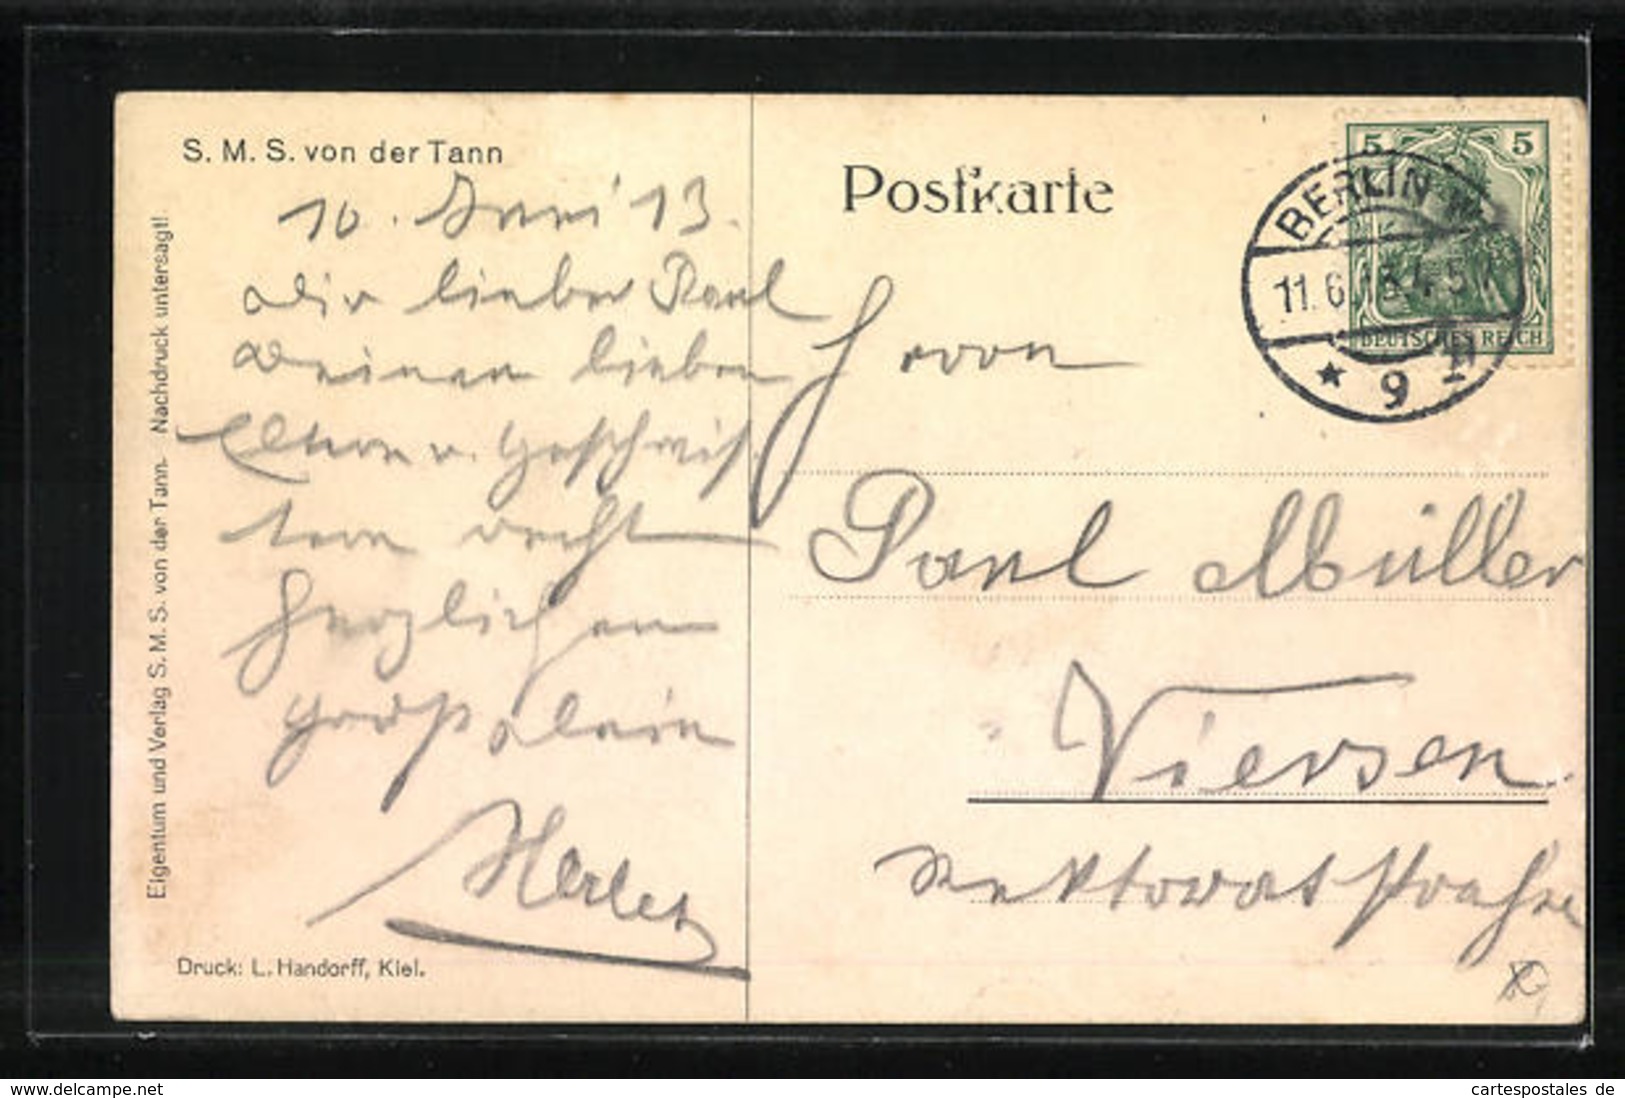 S. M. S. von der Tann
10. Juni 13.
Dir lieber Paul
Deinen lieben
Eltern u. Geschwis-
tern recht
herzlichen
Gruß
Eigentum und Verlag S. M. S. von der Tann. Nachdruck untersagt!
Druck: L. Handorff, Kiel.
Postkarte
5 5
DEUTSCHES REICH
BERLIN W.
11.6.13.4-5N
* 9 n
Herrn
Paul Müller
Viersen.
Rektoratstraße
cartespostales de